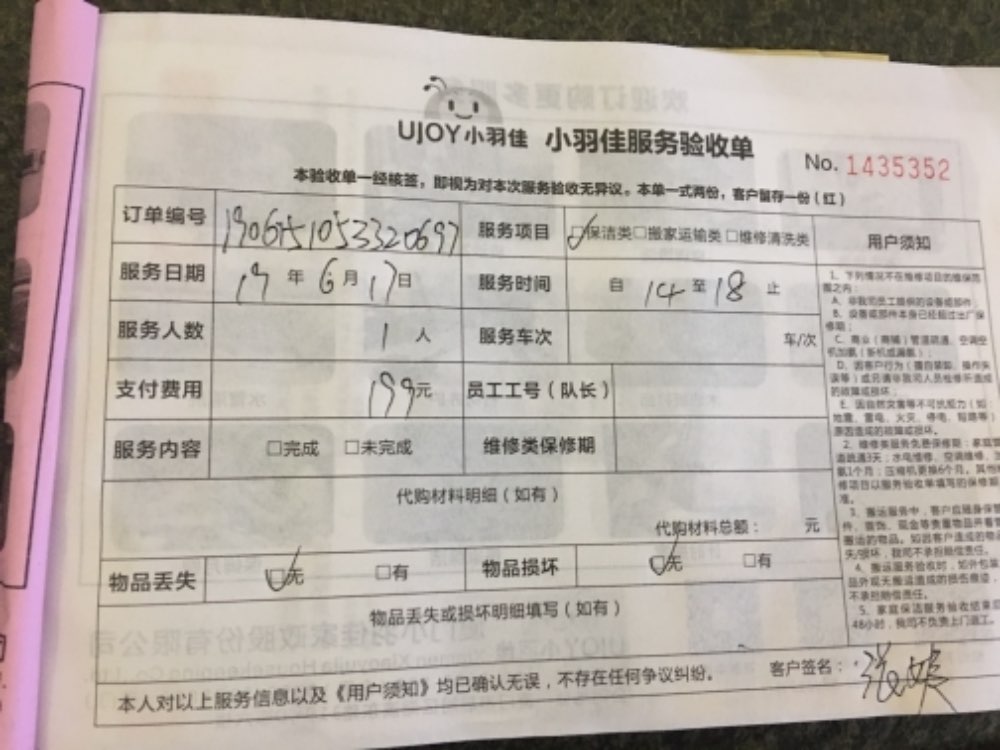 UJOY小羽佳 小羽佳服务验收单
No. 1435352
本验收单一经核签，即视为对本次服务验收无异议。本单一式两份，客户留存一份（红）
订单编号 190615105332069 服务项目 ☑保洁类□搬家运输类□维修清洗类 用户须知
服务日期 19年6月17日 服务时间 自14至18止
服务人数 1人 服务车次 车/次
支付费用 199元 员工工号（队长）
服务内容 □完成 □未完成 维修类保修期
代购材料明细（如有）
代购材料总额： 元
物品丢失 ☑无 □有 物品损坏 ☑无 □有
物品丢失或损坏明细填写（如有）
本人对以上服务信息以及《用户须知》均已确认无误，不存在任何争议纠纷。 客户签名：
1、下列情况不在维修项目的维保范
围之内：
A、非我司员工提供的设备或部件；
B、设备或部件本身已经超过出厂保
修期；
C、商业（商铺）管道疏通、空调空
机加氨（新机或漏氨）；
D、因客户行为（擅自装卸、操作失
误等）或另请非我司人员检修所造成
的故障或损坏；
E、因自然灾害等不可抗能力（如：
地震、雷电、火灾、停电、短路等）
原因造成的故障或损坏。
2、维修类服务免费保修期：家庭管
道疏通3天；水电维修、空调维修、加
氨1个月；压缩机更换6个月。其他维
修项目以服务验收单填写的保修期
准。
3、搬运服务中，客户应随身保管
件、首饰、现金等贵重物品并看管
搬运的物品。如因客户造成的物品
失/损坏，我司不承担赔偿责任。
4、搬运服务验收时，如外包装
品外观无搬运造成的损伤痕迹，
不承担赔偿责任。
5、家庭保洁服务验收结束后
48小时，我司不负责上门返工。